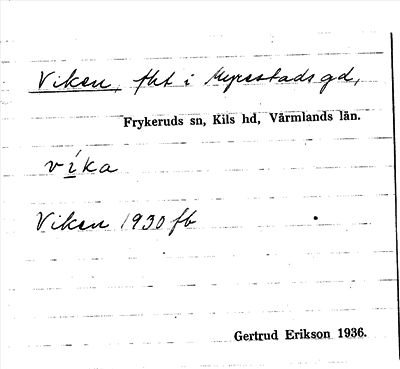 Viken, fbt i Myrestads gd,
Frykeruds sn, Kils hd, Värmlands län.
víka
Viken 1930 fb
Gertrud Erikson 1936.